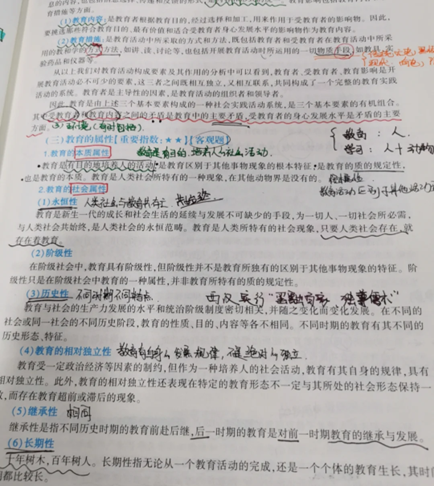 (1)教育内容:是教育者根据教育目的,经过选择和加工,用来作用于受教育者的影响物。因此,
(2)教育措施:是教育活动中所采取的方式和方法,既包括教育者和受教育者在教育活动中所采
用的教和学的方法,如讲、读、讨论等,也包括开展教育活动时所运用的一切物质手段,如教具、实
验药品和仪器等。
从以上我们对教育活动构成要素及其作用的分析中可以看到,教育者、受教育者、教育影响是开
展教育活动必不可少的要素,这三者之间既相互独立,又相互联系,共同构成了一个完整的教育实践
活动的系统。教育者是主导性的因素,是教育活动的组织者和领导者。
因此,教育是由上述三个基本要素构成的一种社会实践活动系统,是三个基本要素的有机组合。
其中受教育者与教育内容之间的矛盾是教育中的主要矛盾,受教育者的身心发展水平是矛盾的主要
方面。
(三)教育的属性【重要指数:★★】【客观题】
教育:人
1.教育的本质属性
教育是有目的地培养人的活动,是教育区别于其他事物现象的根本特征,是教育的质的规定性,
也是教育的本质。教育是人类社会所特有的一种现象,在其他动物界是没有的。
2.教育的社会属性
(1)永恒性
教育是新生一代的成长和社会生活的延续与发展不可缺少的手段,为一切人、一切社会所必需,
与人类社会共始终,是人类社会的永恒范畴。教育是人类所特有的社会现象,只要人类社会存在,就
存在着教育。
(2)阶级性
在阶级社会中,教育具有阶级性,但阶级性并不是教育所独有的区别于其他事物现象的特征。阶
级性只是在阶级社会中教育的一种属性,并非教育所特有的质的规定性。
(3)历史性 不同时期不同特点
教育与社会的生产力发展的水平和统治阶级制度密切相关,并随之变化而变化发展。在不同的
社会或同一社会的不同历史阶段,教育的性质、目的、内容等各不相同。不同时期的教育有其不同的
历史形态、特征。
(4)教育的相对独立性
教育受一定政治经济等因素的制约,但作为一种培养人的社会活动,教育有其自身的规律,具有
相对独立性。此外,教育的相对独立性还表现在特定的教育形态不一定与其所处的社会形态保持一
致,而存在教育超前或滞后的现象。
(5)继承性
继承性是指不同历史时期的教育前后赓续,后一时期的教育是对前一时期教育的继承与发展。
(6)长期性
十年树木,百年树人。长期性指无论从一个教育活动的完成,还是一个个体的教育生长,其时
间都比较长。